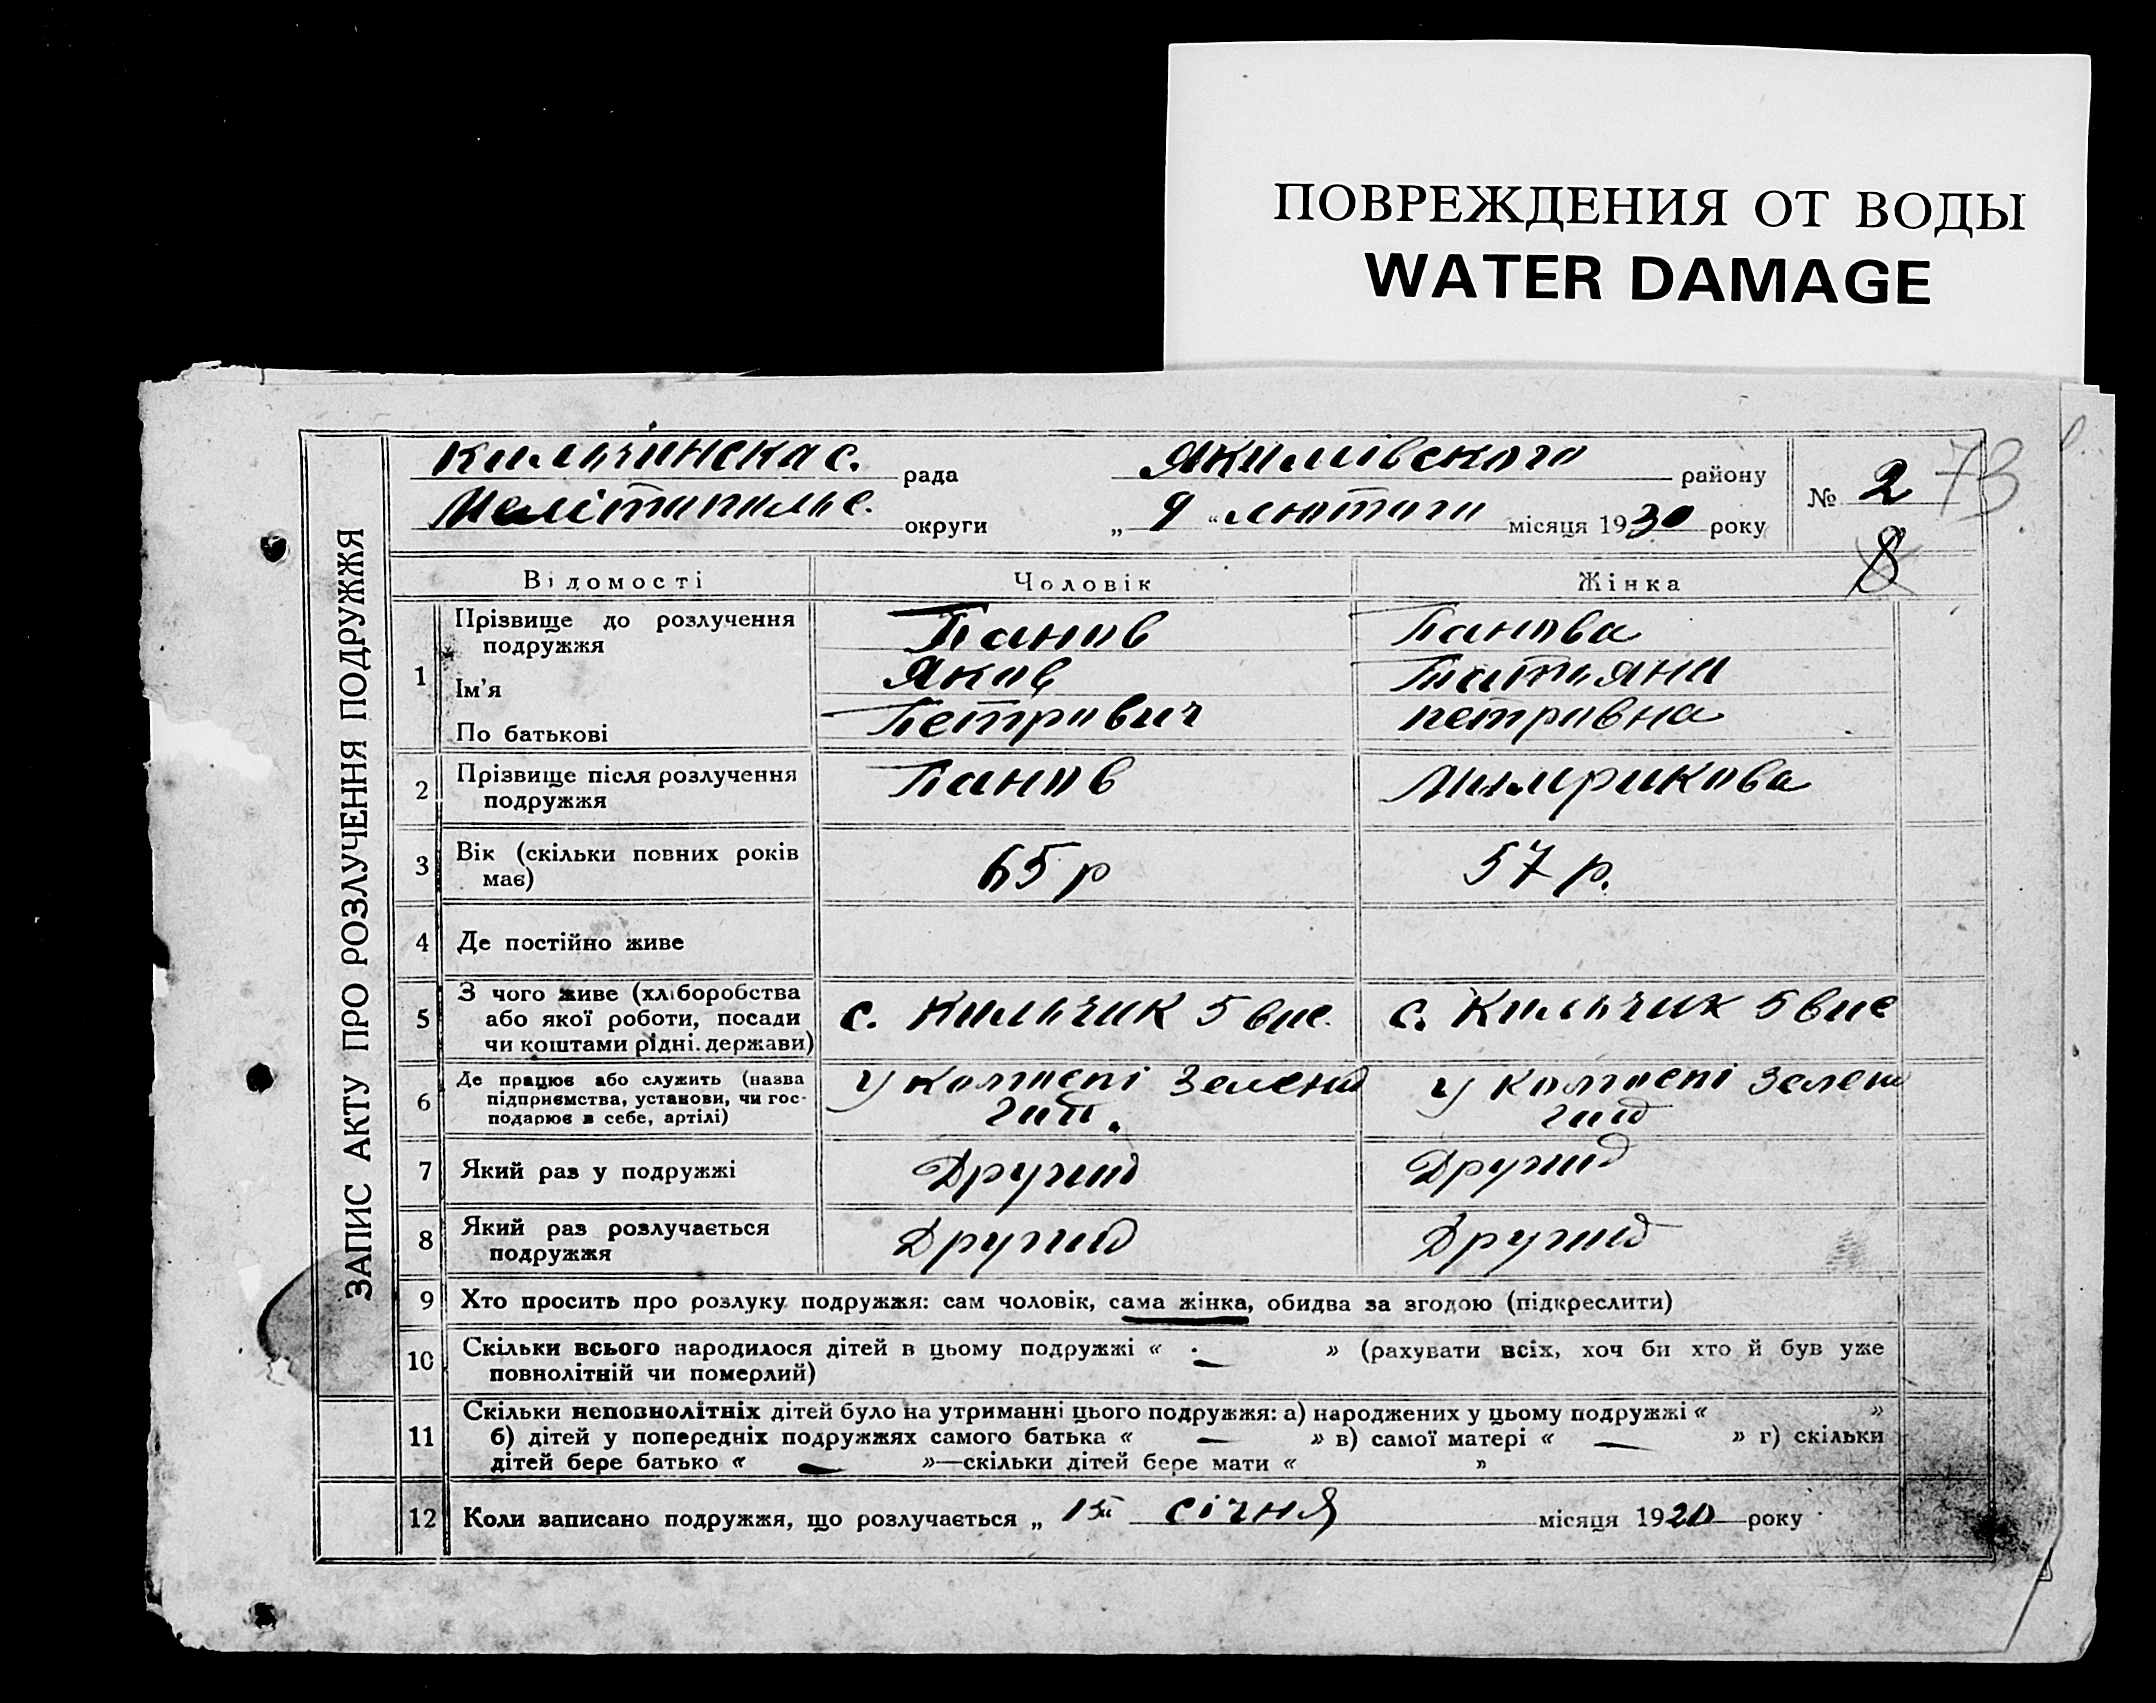 ПОВРЕЖДЕНИЯ ОТ ВОДЫ
WATER DAMAGE
ЗАПИС АКТУ ПРО РОЗЛУЧЕННЯ ПОДРУЖЖЯ
Кильчинска с. рада Якимівского району № 2 73
Мелітопольс. округи „ 9 “ лютого місяця 1930 року
8
Відомості Чоловік Жінка
1 Прізвище до розлучення Панов Панова
подружжя
Ім'я Яков Татьяна
По батькові Петрович Петровна
2 Прізвище після розлучення Панов
подружжя
3 Вік (скільки повних років 65 р 57 р.
має)
4 Де постійно живе
5 З чого живе (хліборобства с. Кильчик 5 вис. с. Кильчик 5 вис
або якої роботи, посади
чи коштами рідні. держави)
6 Де працює або служить (назва У колгоспі Зелений У колгоспі Зелений
підприємства, установи, чи гос-
подарює в себе, артілі) гай. гай
7 Який раз у подружжі Другий Другий
8 Який раз розлучається Другий Другий
подружжя
9 Хто просить про розлуку подружжя: сам чоловік, сама жінка, обидва за згодою (підкреслити)
10 Скільки всього народилося дітей в цьому подружжі « — » (рахувати всіх, хоч би хто й був уже
повнолітній чи померлий)
11 Скільки неповнолітніх дітей було на утриманні цього подружжя: а) народжених у цьому подружжі « »
б) дітей у попередніх подружжях самого батька « — » в) самої матері « — » г) скільки
дітей бере батько « — »—скільки дітей бере мати « »
12 Коли записано подружжя, що розлучається „ січня місяця 1920 року